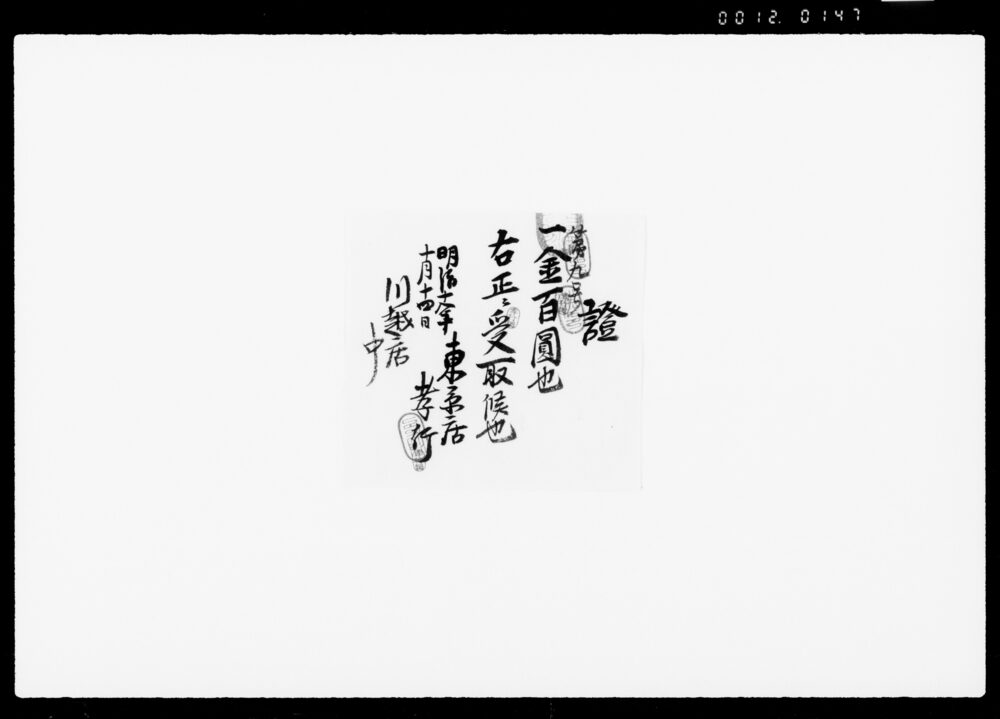 0012. 0147
第九号
證
一金百圓也
右正ニ受取候也
明治十六年
十月十四日
東京店
孝行
川越店
中